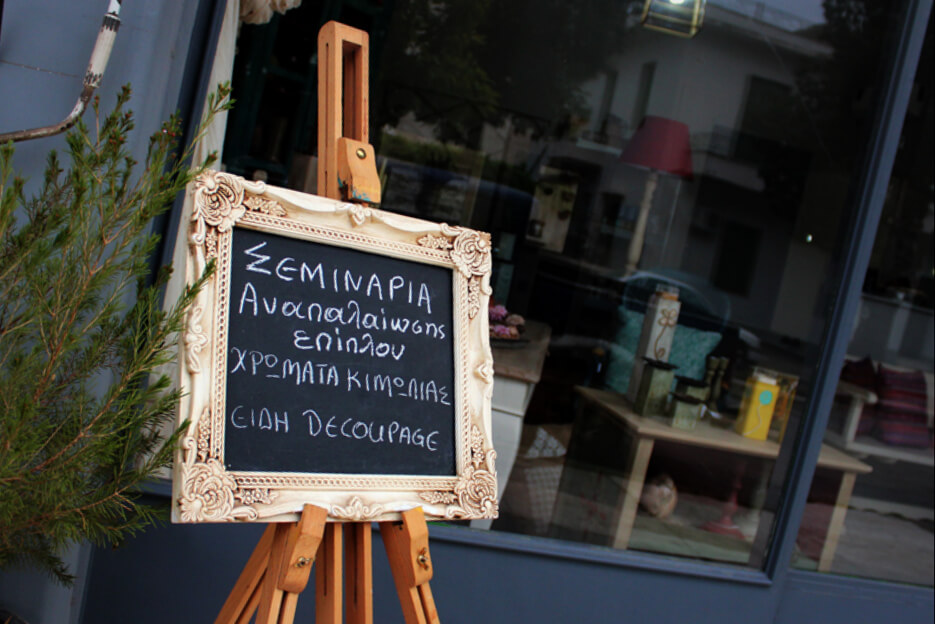 ΣΕΜΙΝΑΡΙΑ
Αναπαλαίωσης
επίπλου
ΧΡΩΜΑΤΑ ΚΙΜΩΛΙΑΣ
ΕΙΔΗ DECOUPAGE